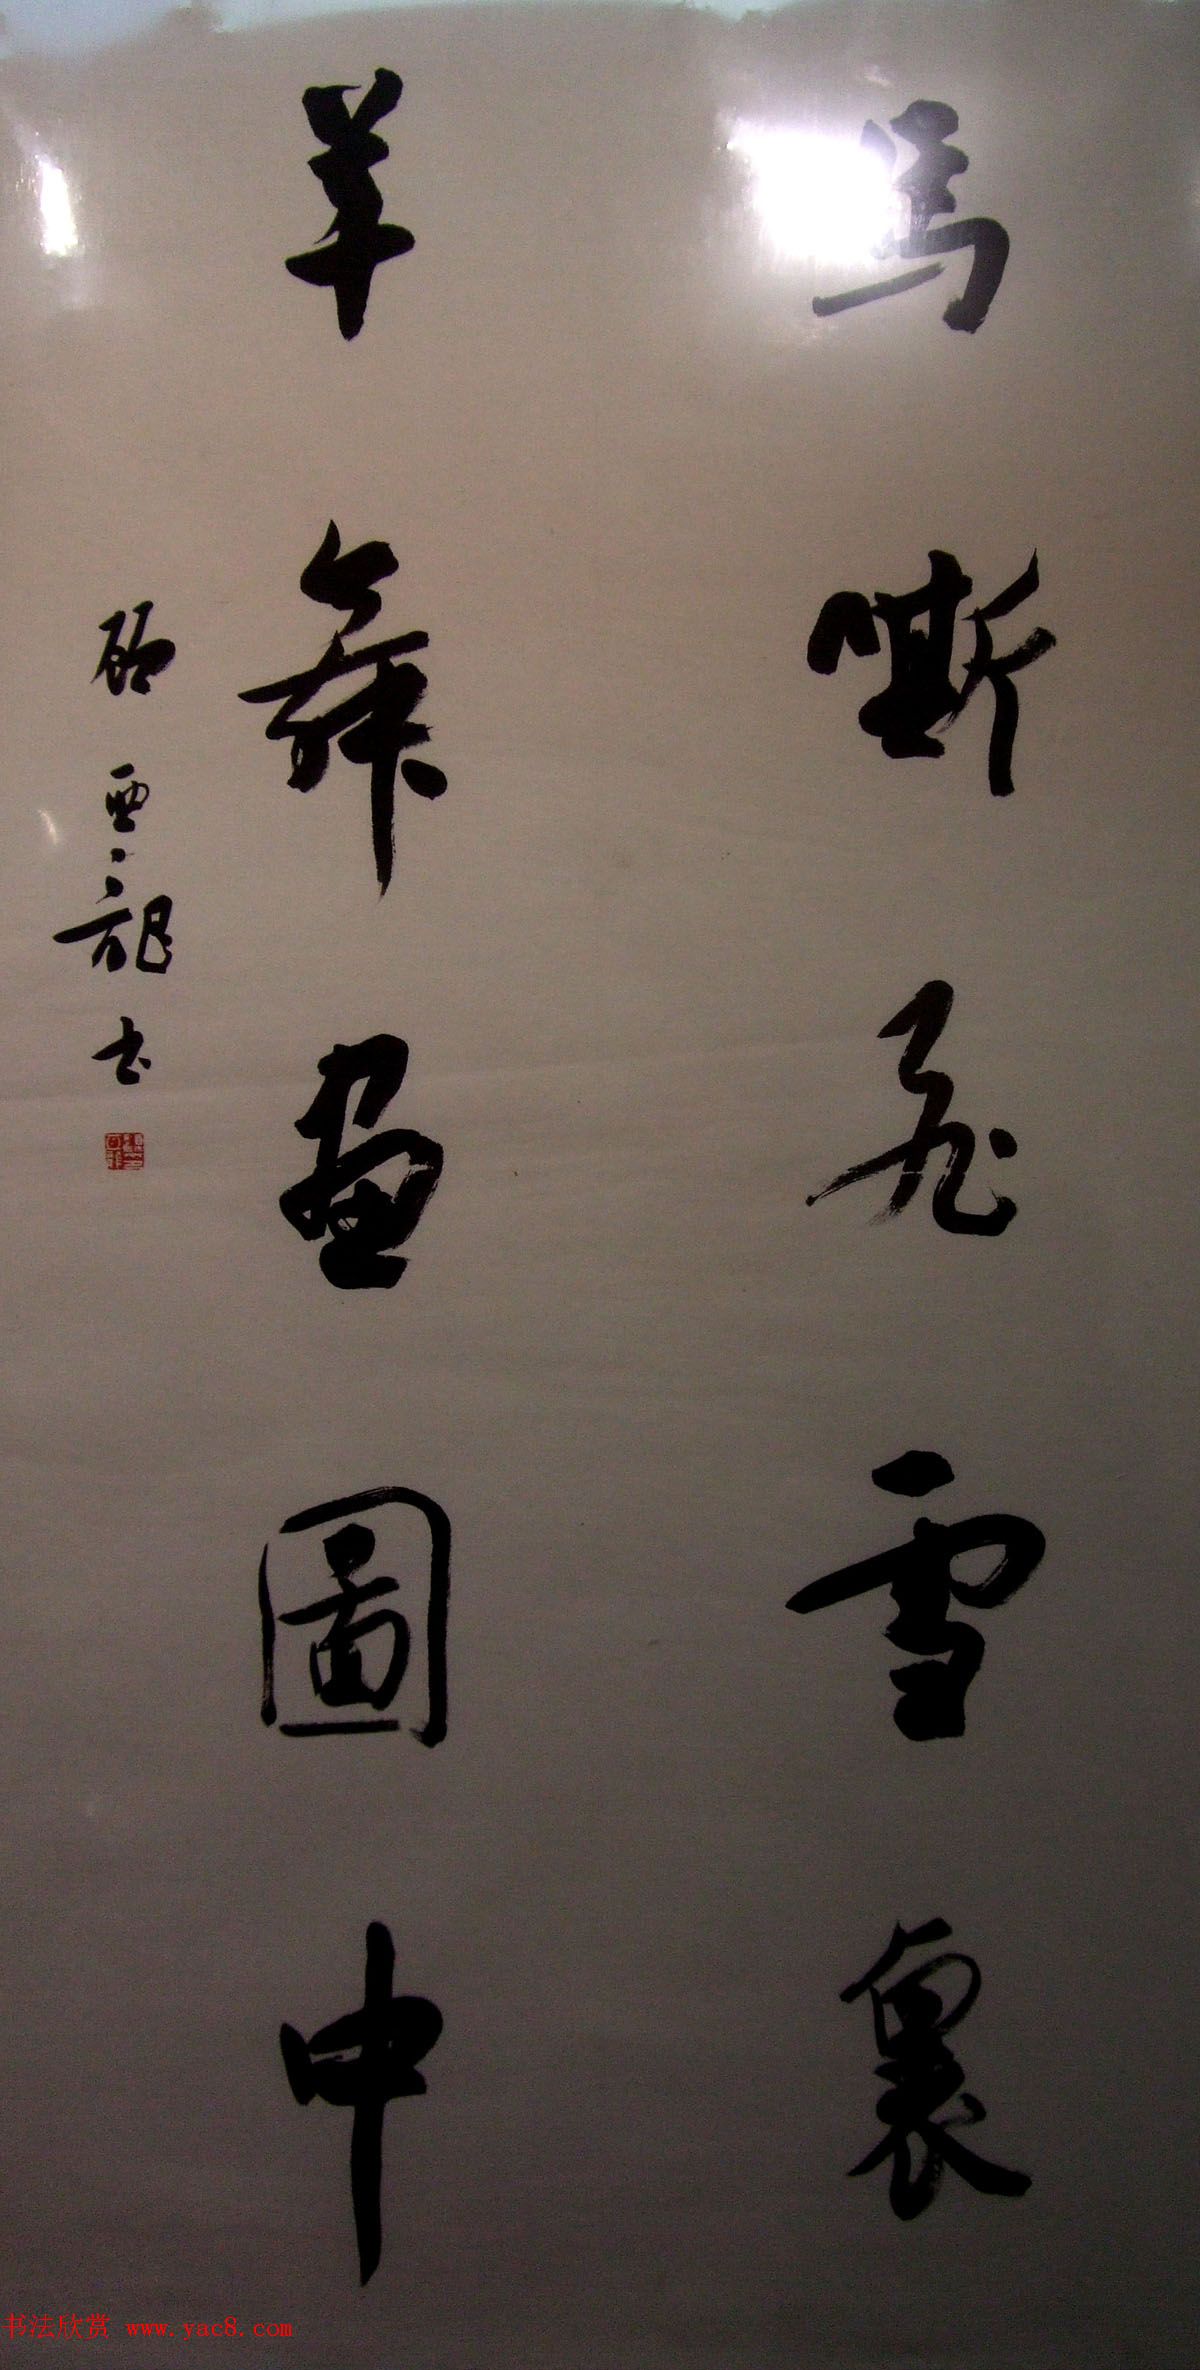 馬嘶飛雪裏
羊舞畫圖中
顧亞龍书
书法欣赏 www.yac8.com